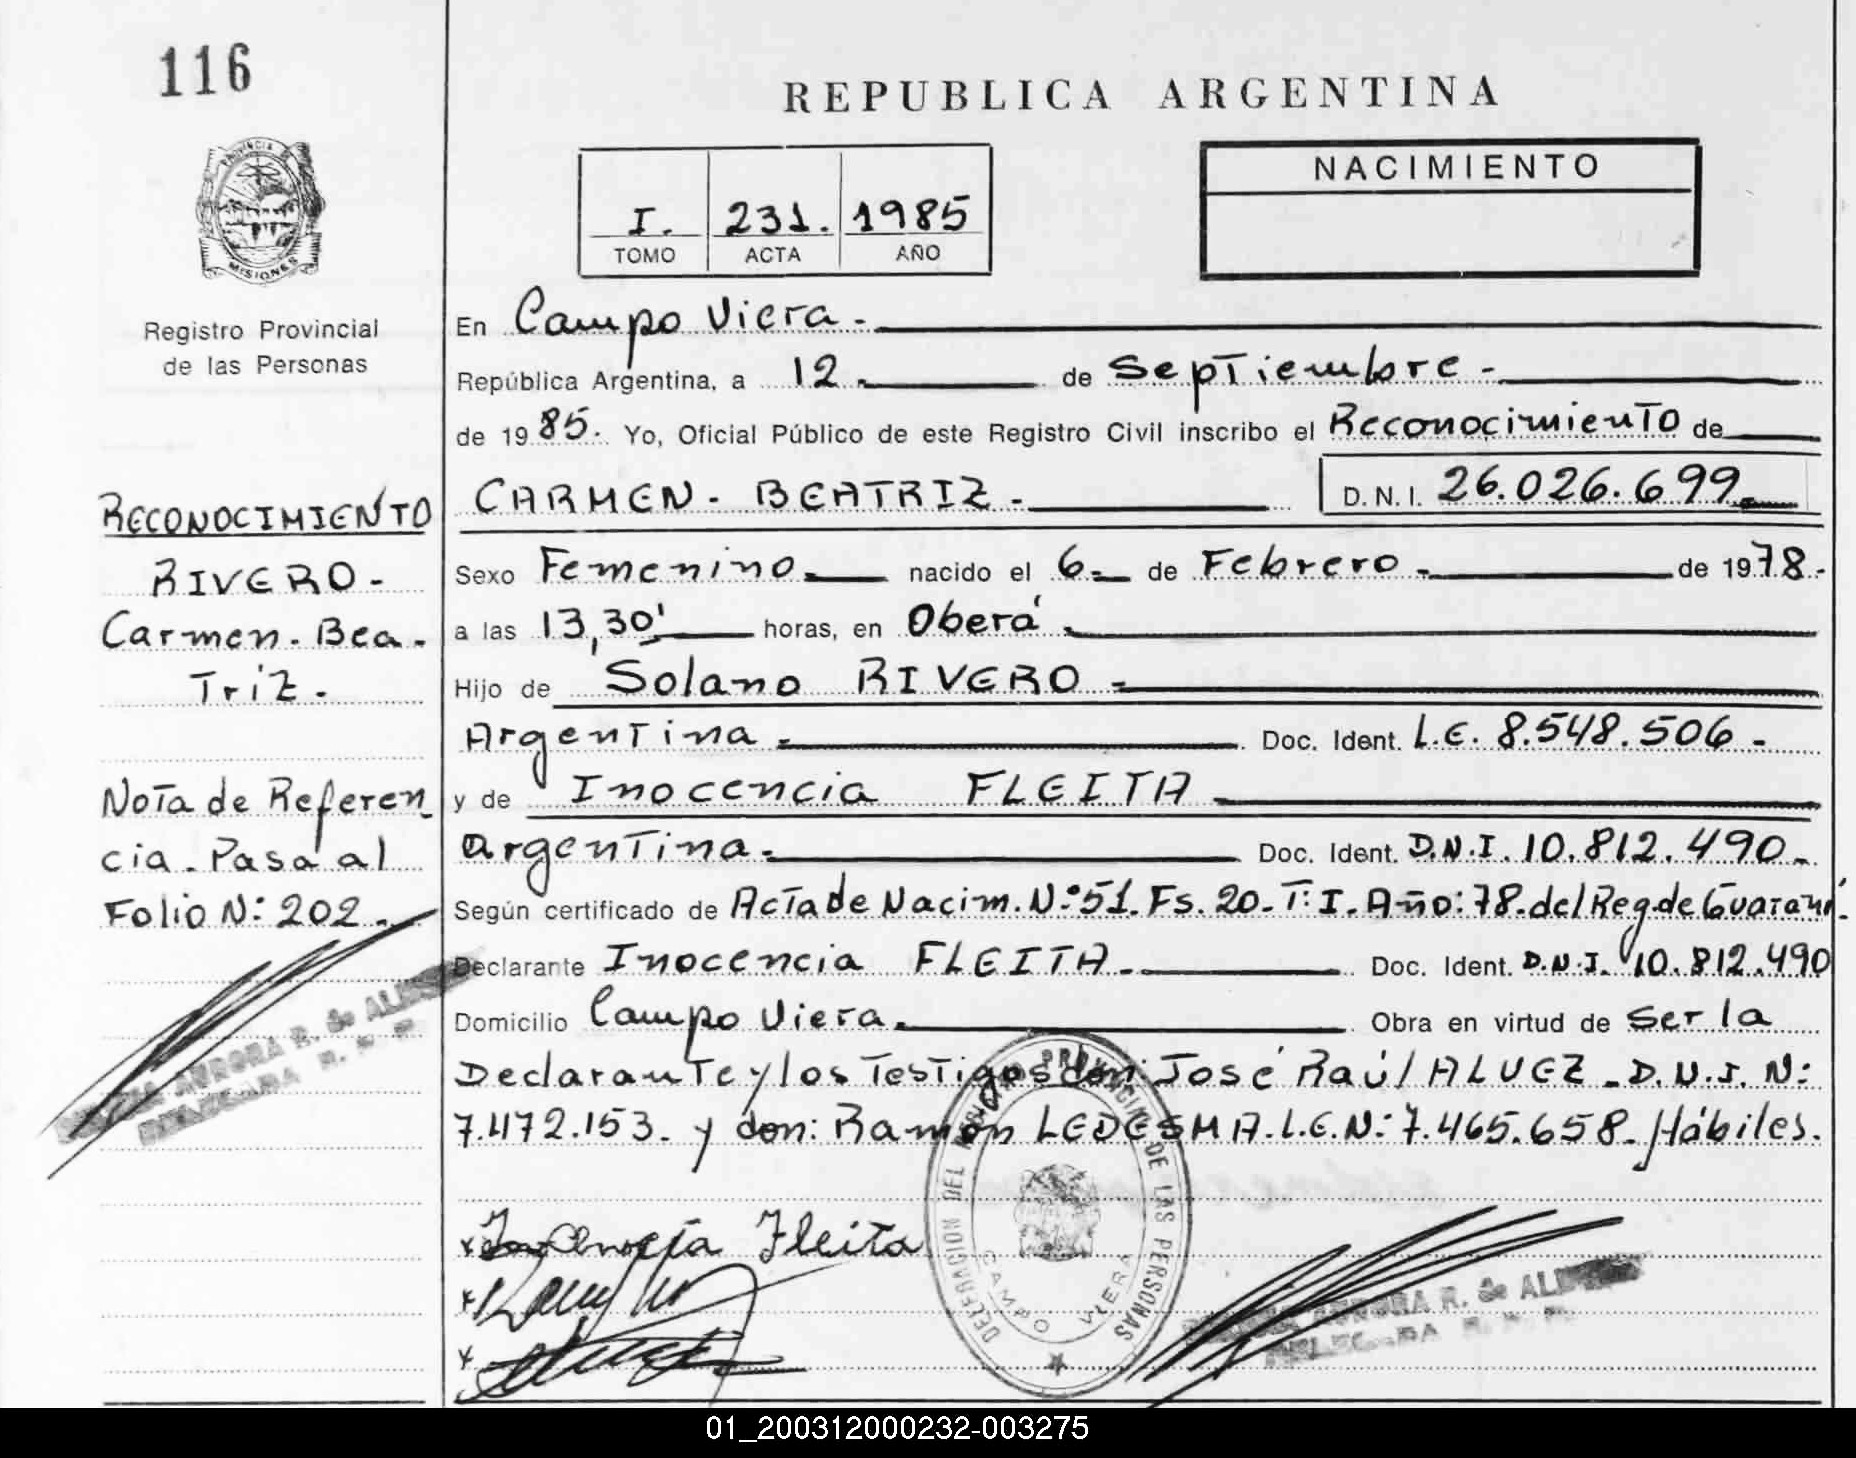 116
REPUBLICA ARGENTINA
PROVINCIA DE
MISIONES
NACIMIENTO
I. 231. 1985
TOMO ACTA AÑO
Registro Provincial
de las Personas
En Campo Viera.-
República Argentina, a 12.- de Septiembre.-
de 1985. Yo, Oficial Público de este Registro Civil inscribo el Reconocimiento de
CARMEN. BEATRIZ.- D.N.I. 26.026.699.-
RECONOCIMIENTO
RIVERO.-
Carmen. Bea.-
Triz.-
Sexo Femenino.- nacido el 6.- de Febrero.- de 1978.-
a las 13,30' horas, en Oberá.-
Hijo de Solano RIVERO.-
Argentina.- Doc. Ident. L.E. 8.548.506.-
y de Inocencia FLEITA
Argentina.- Doc. Ident. D.N.I. 10.812.490.-
Nota de Referen
cia. Pasa al
Folio N: 202.-
Según certificado de Acta de Nacim. N:º51. Fs. 20.- T: I. Año: 78. del Reg. de Guaraní.
Declarante Inocencia FLEITA.- Doc. Ident. D.N.I. 10.812.490
Domicilio Campo Viera.- Obra en virtud de Ser la
Declarante y los Testigos don: José Raúl ALVEZ.- D.N.I. N:
7.472.153. y don: Ramón LEDESMA. L.E. N: 7.465.658. Hábiles.
Fleita
AURORA R. de
DELEGACION DEL REGISTRO PROVINCIAL DE LAS PERSONAS
CAMPO VIERA
AURORA R. de
01_200312000232-003275